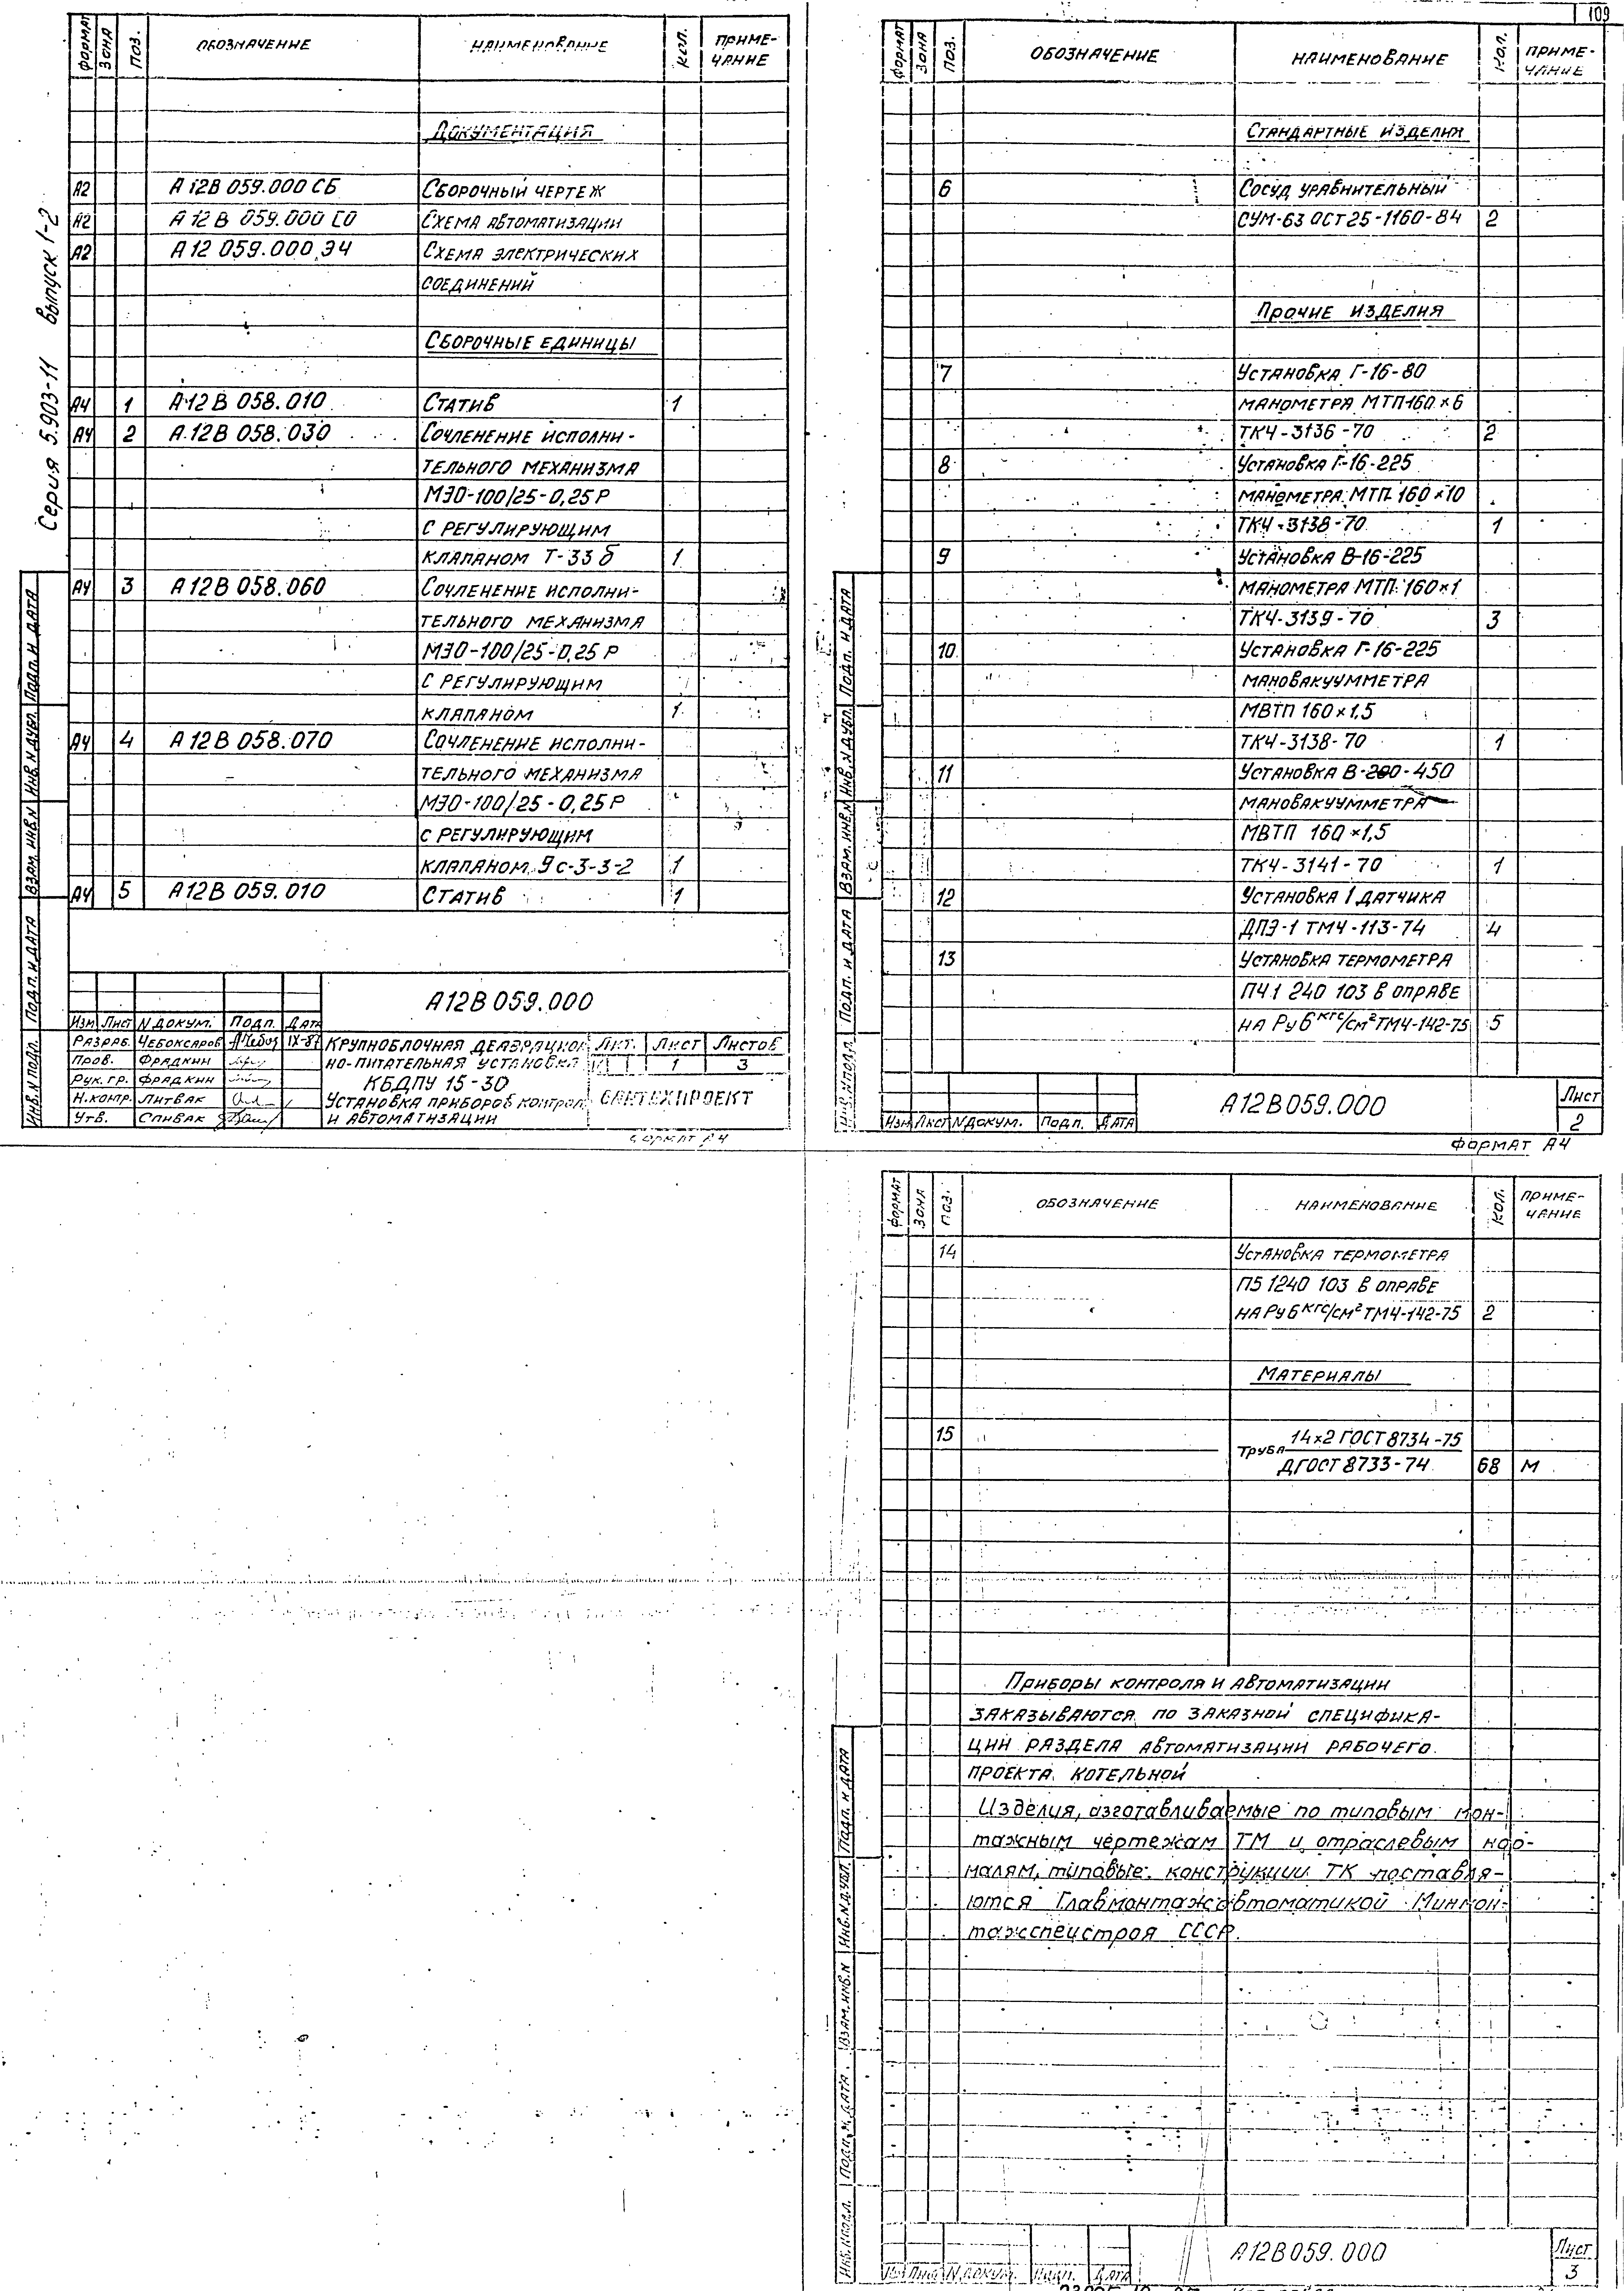 109
Серия 5.903-11 выпуск 1-2
ФОРМАТ ЗОНА ПОЗ. ОБОЗНАЧЕНИЕ НАИМЕНОВАНИЕ КОЛ. ПРИМЕ-
ЧАНИЕ
ДОКУМЕНТАЦИЯ
А2 А12В 059.000 СБ СБОРОЧНЫЙ ЧЕРТЕЖ
А2 А12В 059.000 СО СХЕМА АВТОМАТИЗАЦИИ
А2 А12 059.000.Э4 СХЕМА ЭЛЕКТРИЧЕСКИХ
СОЕДИНЕНИЙ
СБОРОЧНЫЕ ЕДИНИЦЫ
А4 1 А12В 058.010 СТАТИВ 1
А4 2 А12В 058.030 СОЧЛЕНЕНИЕ ИСПОЛНИ-
ТЕЛЬНОГО МЕХАНИЗМА
МЭО-100/25-0,25Р
С РЕГУЛИРУЮЩИМ
КЛАПАНОМ Т-33б 1
А4 3 А12В 058.060 СОЧЛЕНЕНИЕ ИСПОЛНИ-
ТЕЛЬНОГО МЕХАНИЗМА
МЭО-100/25-0,25Р
С РЕГУЛИРУЮЩИМ
КЛАПАНОМ 1
А4 4 А12В 058.070 СОЧЛЕНЕНИЕ ИСПОЛНИ-
ТЕЛЬНОГО МЕХАНИЗМА
МЭО-100/25-0,25Р
С РЕГУЛИРУЮЩИМ
КЛАПАНОМ 9с-3-3-2 1
А4 5 А12В 059.010 СТАТИВ 1
А12В 059.000
ИЗМ ЛИСТ N ДОКУМ. ПОДП. ДАТА
РАЗРАБ. ЧЕБОКСАРОВ IX-87
ПРОВ. ФРАДКИН
РУК.ГР. ФРАДКИН
Н.КОНТР. ЛИТВАК
УТВ. СПИВАК
КРУПНОБЛОЧНАЯ ДЕАЭРАЦИОН
НО-ПИТАТЕЛЬНАЯ УСТАНОВКА
КБДПУ 15-30
УСТАНОВКА ПРИБОРОВ КОНТРОЛ
И АВТОМАТИЗАЦИИ
ЛИТ. ЛИСТ ЛИСТОВ
1 3
САНТЕХПРОЕКТ
ФОРМАТ А4
ИНВ.N ПОДЛ. ПОДП. И ДАТА ВЗАМ. ИНВ.N ИНВ.N ДУБЛ. ПОДП. И ДАТА
ФОРМАТ ЗОНА ПОЗ. ОБОЗНАЧЕНИЕ НАИМЕНОВАНИЕ КОЛ. ПРИМЕ-
ЧАНИЕ
СТАНДАРТНЫЕ ИЗДЕЛИЯ
6 СОСУД УРАВНИТЕЛЬНЫЙ
СУМ-63 ОСТ25-1160-84 2
ПРОЧИЕ ИЗДЕЛИЯ
7 УСТАНОВКА Г-16-80
МАНОМЕТРА МТП160×6
ТК4-3136-70 2
8 УСТАНОВКА Г-16-225
МАНОМЕТРА МТП 160×10
ТК4-3138-70 1
9 УСТАНОВКА В-16-225
МАНОМЕТРА МТП 160×1
ТК4-3139-70 3
10 УСТАНОВКА Г-16-225
МАНОВАКУУММЕТРА
МВТП 160×1,5
ТК4-3138-70 1
11 УСТАНОВКА В-200-450
МАНОВАКУУММЕТРА
МВТП 160×1,5
ТК4-3141-70 1
12 УСТАНОВКА 1 ДАТЧИКА
ДПЭ-1 ТМ4-113-74 4
13 УСТАНОВКА ТЕРМОМЕТРА
П4.1 240 103 В ОПРАВЕ
НА Ру 6 кгс/см² ТМ4-142-75 5
ИЗМ ЛИСТ N ДОКУМ. ПОДП. ДАТА
А12В059.000
ЛИСТ
2
ФОРМАТ А4
ИНВ.N ПОДЛ. ПОДП. И ДАТА ВЗАМ. ИНВ.N ИНВ.N ДУБЛ. ПОДП. И ДАТА
ФОРМАТ ЗОНА ПОЗ. ОБОЗНАЧЕНИЕ НАИМЕНОВАНИЕ КОЛ. ПРИМЕ-
ЧАНИЕ
14 УСТАНОВКА ТЕРМОМЕТРА
П5 1240 103 В ОПРАВЕ
НА Ру 6 кгс/см² ТМ4-142-75 2
МАТЕРИАЛЫ
15 ТРУБА 14×2 ГОСТ 8734-75
Д ГОСТ 8733-74 68 М
ПРИБОРЫ КОНТРОЛЯ И АВТОМАТИЗАЦИИ
ЗАКАЗЫВАЮТСЯ ПО ЗАКАЗНОЙ СПЕЦИФИКА-
ЦИИ РАЗДЕЛА АВТОМАТИЗАЦИИ РАБОЧЕГО
ПРОЕКТА КОТЕЛЬНОЙ
Изделия, изготавливаемые по типовым мон-
тажным чертежам ТМ и отраслевым нор-
малям, типовые конструкции ТК поставля-
ются Главмонтажавтоматикой Минмон-
тажспецстроя СССР.
ИНВ.N ПОДЛ. ПОДП. И ДАТА ВЗАМ. ИНВ.N ИНВ.N ДУБЛ. ПОДП. И ДАТА
ИЗМ ЛИСТ N ДОКУМ. ПОДП. ДАТА
А12В059.000
ЛИСТ
3